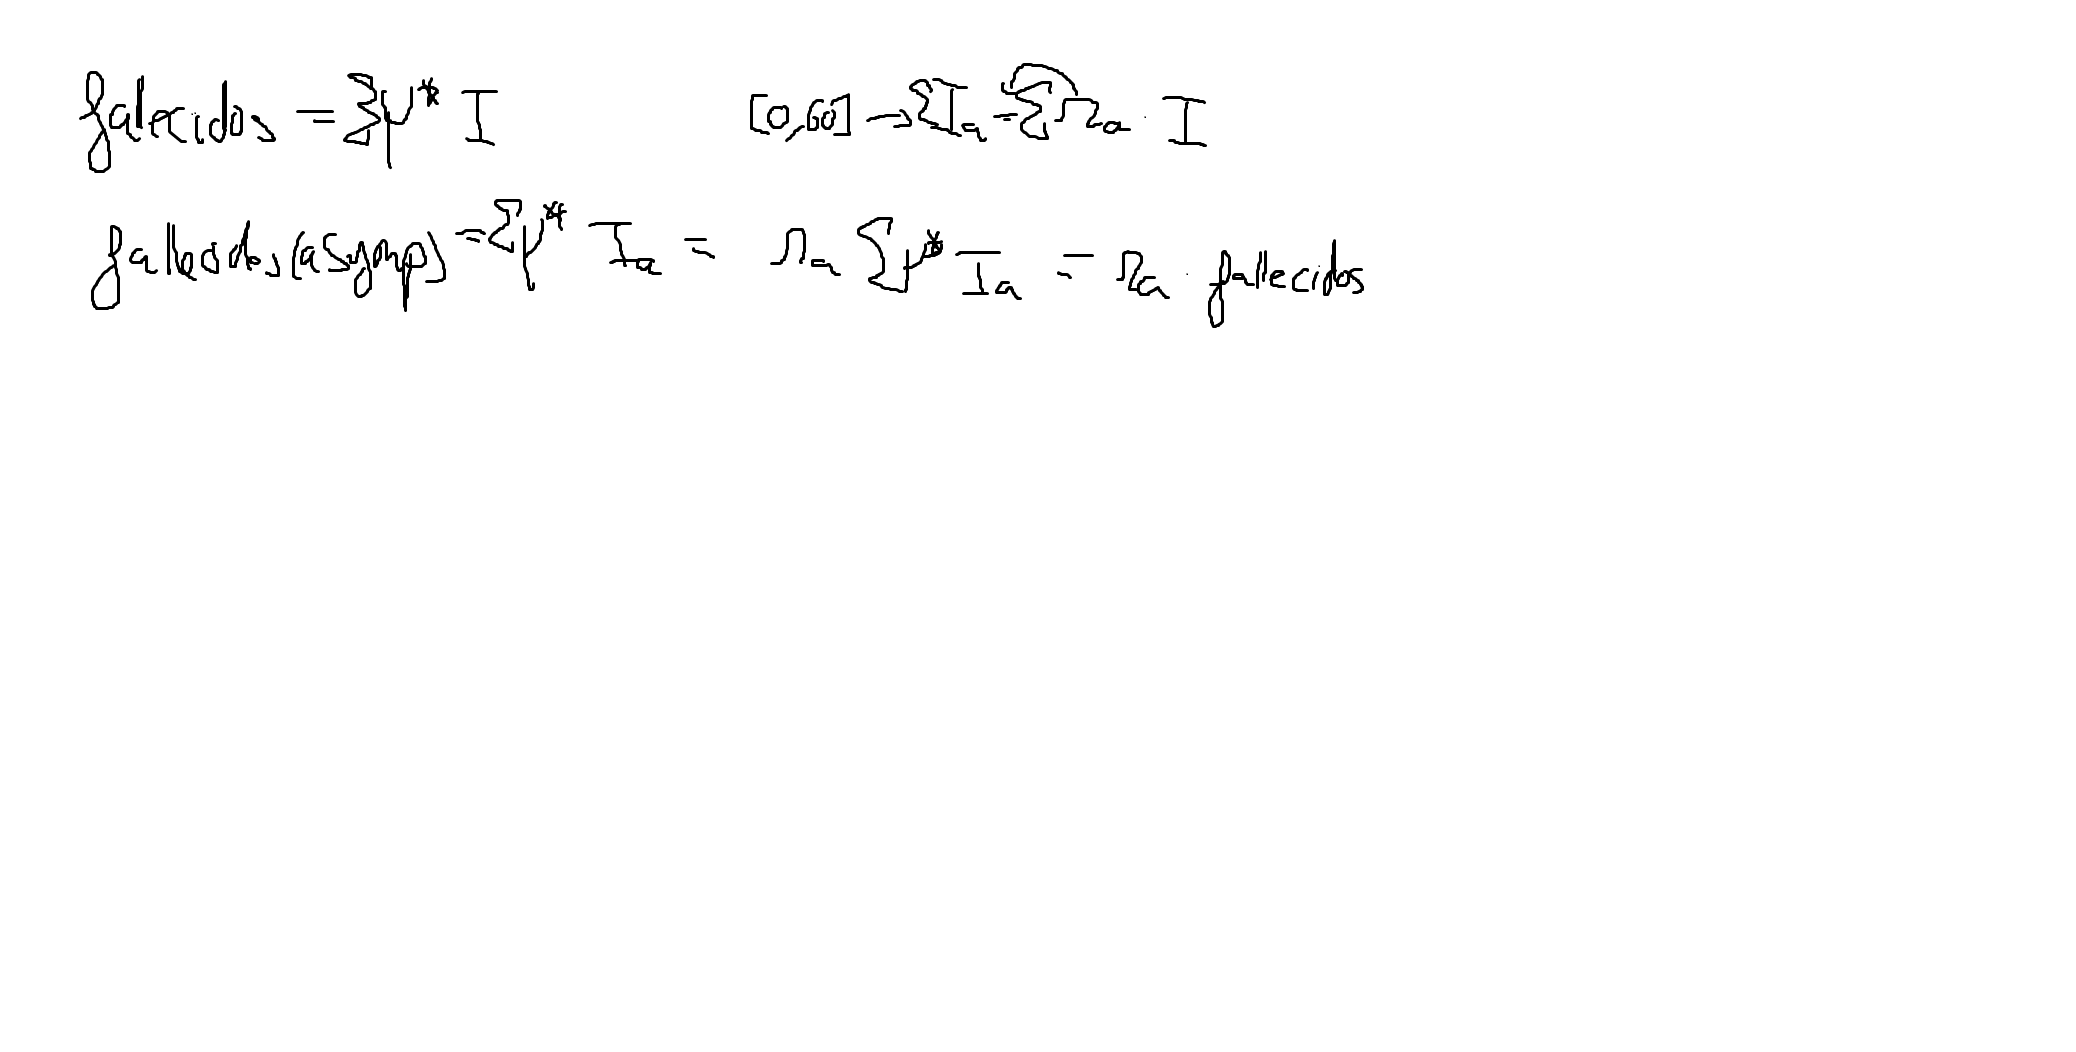 fallecidos = Σμ* I [0,60] → ΣI_a = Σ r_a · I
fallecidos (asymp) = Σμ* I_a = r_a Σμ* I_a = r_a · fallecidos